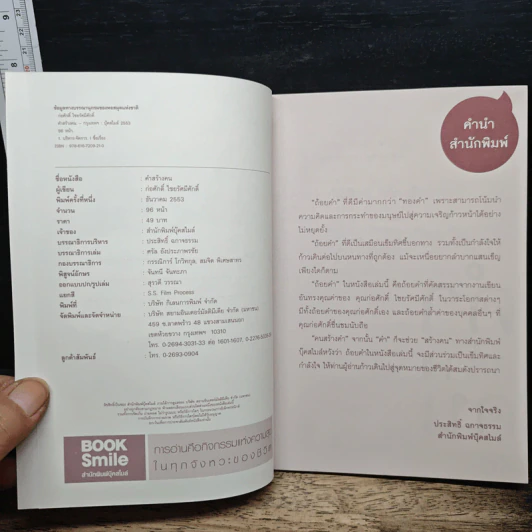 ข้อมูลทางบรรณานุกรมของหอสมุดแห่งชาติ
ก่อศักดิ์ ไชยรัศมีศักดิ์
คำสร้างคน -- กรุงเทพฯ : บุ๊คสไมล์ 2553
96 หน้า
ชื่อหนังสือ : คำสร้างคน
ผู้เขียน : ก่อศักดิ์ ไชยรัศมีศักดิ์
พิมพ์ครั้งที่หนึ่ง : ธันวาคม 2553
จำนวน : 96 หน้า
ราคา : 49 บาท
เจ้าของ : สำนักพิมพ์บุ๊คสไมล์
บรรณาธิการบริหาร : ประสิทธิ์ ฉกาจธรรม
บรรณาธิการเล่ม : ศรัล อัยประภาพรชัย
กองบรรณาธิการ : กรรณิการ์ ไกวิกกุล, สมจิต พิเศษสาทร
พิสูจน์อักษร : จันทนี จันทรภา
ออกแบบปก/รูปเล่ม : สุรวดี วรรณา
แยกสี : S.S. Film Process
พิมพ์ที่ : บริษัท ก้นสนการพิมพ์ จำกัด
จัดพิมพ์และจัดจำหน่าย : บริษัท สยามอินเตอร์มัลติมีเดีย จำกัด (มหาชน)
459 ซ.ลาดพร้าว 48 แขวงสามเสนนอก
เขตห้วยขวาง กรุงเทพฯ 10310
โทร. 0-2694-3031-33 ต่อ
ลูกค้าสัมพันธ์ : โทร. 0-2693-0904
BOOK
Smile
สำนักพิมพ์บุ๊คสไมล์
การอ่านคือกิจกรรมแห่งความสุข
ในทุกจังหวะของชีวิต
คำนำ
สำนักพิมพ์
"ถ้อยคำ" ที่ดีมีค่ามากกว่า "ทองคำ" เพราะสามารถโน้มนำ
ความคิดและการกระทำของมนุษย์ไปสู่ความเจริญก้าวหน้าได้อย่าง
ไม่หยุดยั้ง
"ถ้อยคำ" ที่ดีเป็นเสมือนเข็มทิศชี้บอกทาง รวมทั้งเป็นกำลังใจให้
ก้าวเดินต่อไปบนหนทางที่ถูกต้อง แม้จะเหนื่อยยากลำบากแสนเข็ญ
เพียงใดก็ตาม
"ถ้อยคำ" ในหนังสือเล่มนี้ คือถ้อยคำที่คัดสรรมาจากงานเขียน
อันทรงคุณค่าของ คุณก่อศักดิ์ ไชยรัศมีศักดิ์ ในวาระโอกาสต่างๆ
มีทั้งถ้อยคำของคุณก่อศักดิ์เอง และถ้อยคำล้ำค่าของบุคคลอื่นๆ ที่
คุณก่อศักดิ์ชื่นชมนับถือ
"คนสร้างคำ" จากนั้น "คำ" ก็จะช่วย "สร้างคน" ทางสำนักพิมพ์
บุ๊คสไมล์หวังว่า ถ้อยคำในหนังสือเล่มนี้ จะมีส่วนร่วมเป็นเข็มทิศและ
กำลังใจ ให้ท่านผู้อ่านก้าวเดินไปสู่จุดหมายของชีวิตได้สมดังปรารถนา
จากใจจริง
ประสิทธิ์ ฉกาจธรรม
สำนักพิมพ์บุ๊คสไมล์